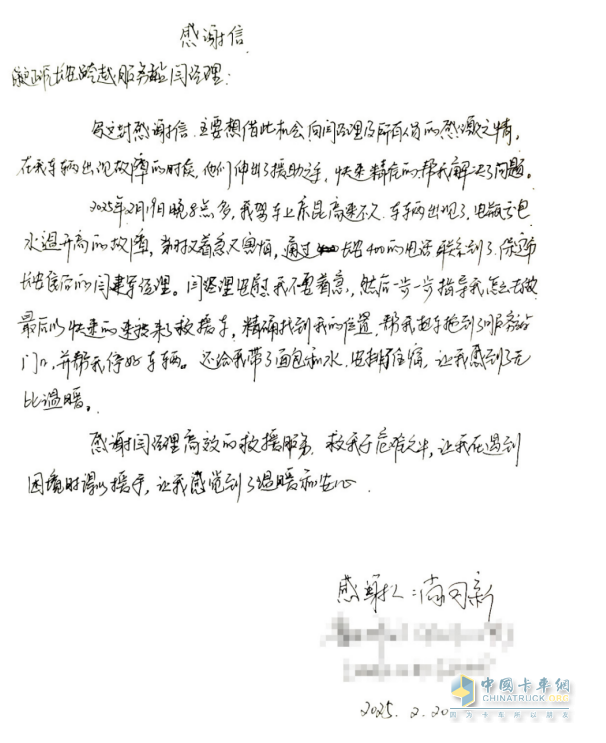 感谢信
保定市长安跨越服务站闫经理：
每文封感谢信 主要想借此机会向闫经理及所有人员的感激之情，
在我车辆出现故障的时候，他们伸出了援助之手，快速精准的帮我解决了问题。
2025年2月19日晚8点多，我驾车上京昆高速不久，车辆出现了，电瓶亏电
水温升高的故障，当时又着急又害怕，通过长安400的电话联系到了保定
长安售后的闫建军经理。闫经理安慰我不要着急，然后一步一步指导我怎么去做
最后以快速的速度来了救援车，精确找到我的位置，帮我把车拖到了服务站
门口，并帮我停好车辆。还给我带了面包和水，安排好住宿，让我感到了无
比温暖。
感谢闫经理高效的救援服务，救我于危难之中，让我在遇到
困境时得以援手，让我感觉到了温暖和安心。
感谢人：尚
2025.2.20
中国卡车网
CHINATRUCK.ORG
因为卡车所以朋友